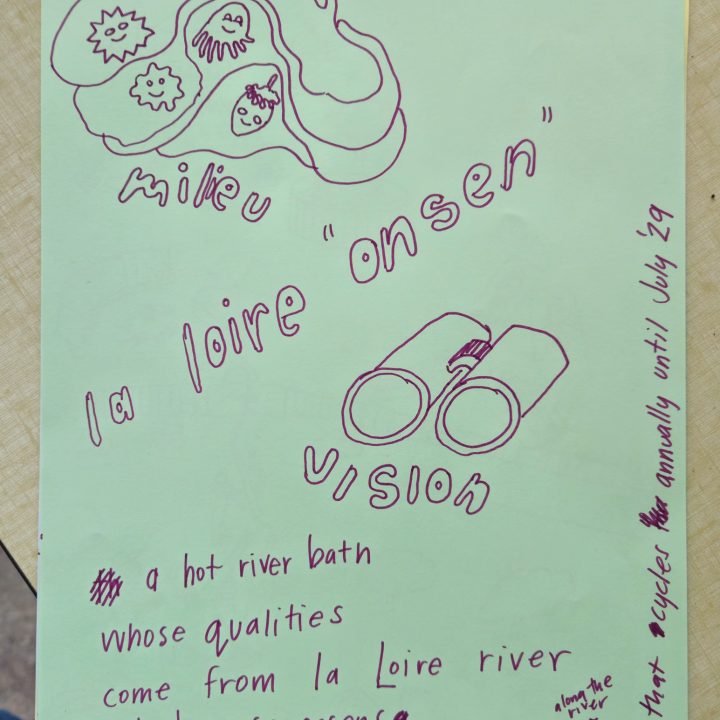 milieu
la loire "onsen"
vision
a hot river bath
whose qualities
come from la Loire river
along the
river
that cycles annually until July '29